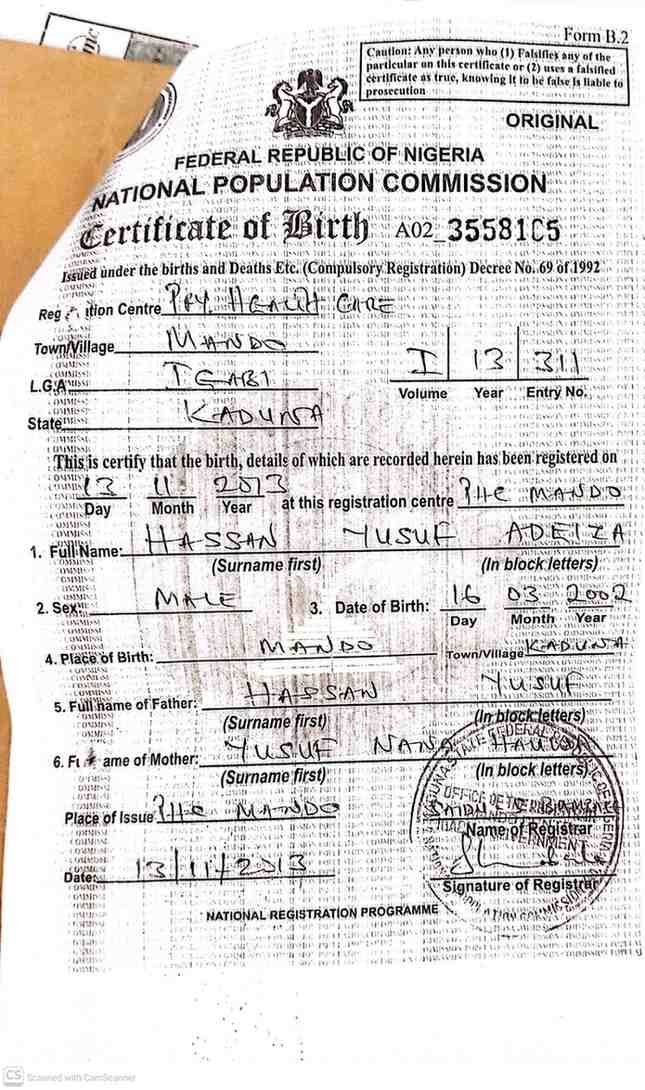 Form B.2
Caution: Any person who (1) Falsifies any of the
particular on this certificate or (2) uses a falsified
certificate as true, knowing it to be false is liable to
prosecution
ORIGINAL
FEDERAL REPUBLIC OF NIGERIA
NATIONAL POPULATION COMMISSION
Certificate of Birth A02_3558105
Issued under the births and Deaths Etc. (Compulsory Registration) Decree No. 69 of 1992
Reg tion Centre PRY HEALTH CARE
Town/Village MANDO
L.G.A IGABI
I 13 311
Volume Year Entry No.
State KADUNA
This is certify that the birth, details of which are recorded herein has been registered on
13 11 2013 at this registration centre PHC MANDO
Day Month Year
1. Full Name: HASSAN YUSUF ADEIZA
(Surname first) (In block letters)
2. Sex: MALE 3. Date of Birth: 16 03 2002
Day Month Year
4. Place of Birth: MANDO Town/Village KADUNA
5. Full name of Father: HASSAN YUSUF
(Surname first) (In block letters)
6. Fu ame of Mother: YUSUF NANA
(Surname first) (In block letters)
Place of Issue PHC MANDO
Name of Registrar
Date: 13/11/2013
Signature of Registrar
NATIONAL REGISTRATION PROGRAMME
CS Scanned with CamScanner